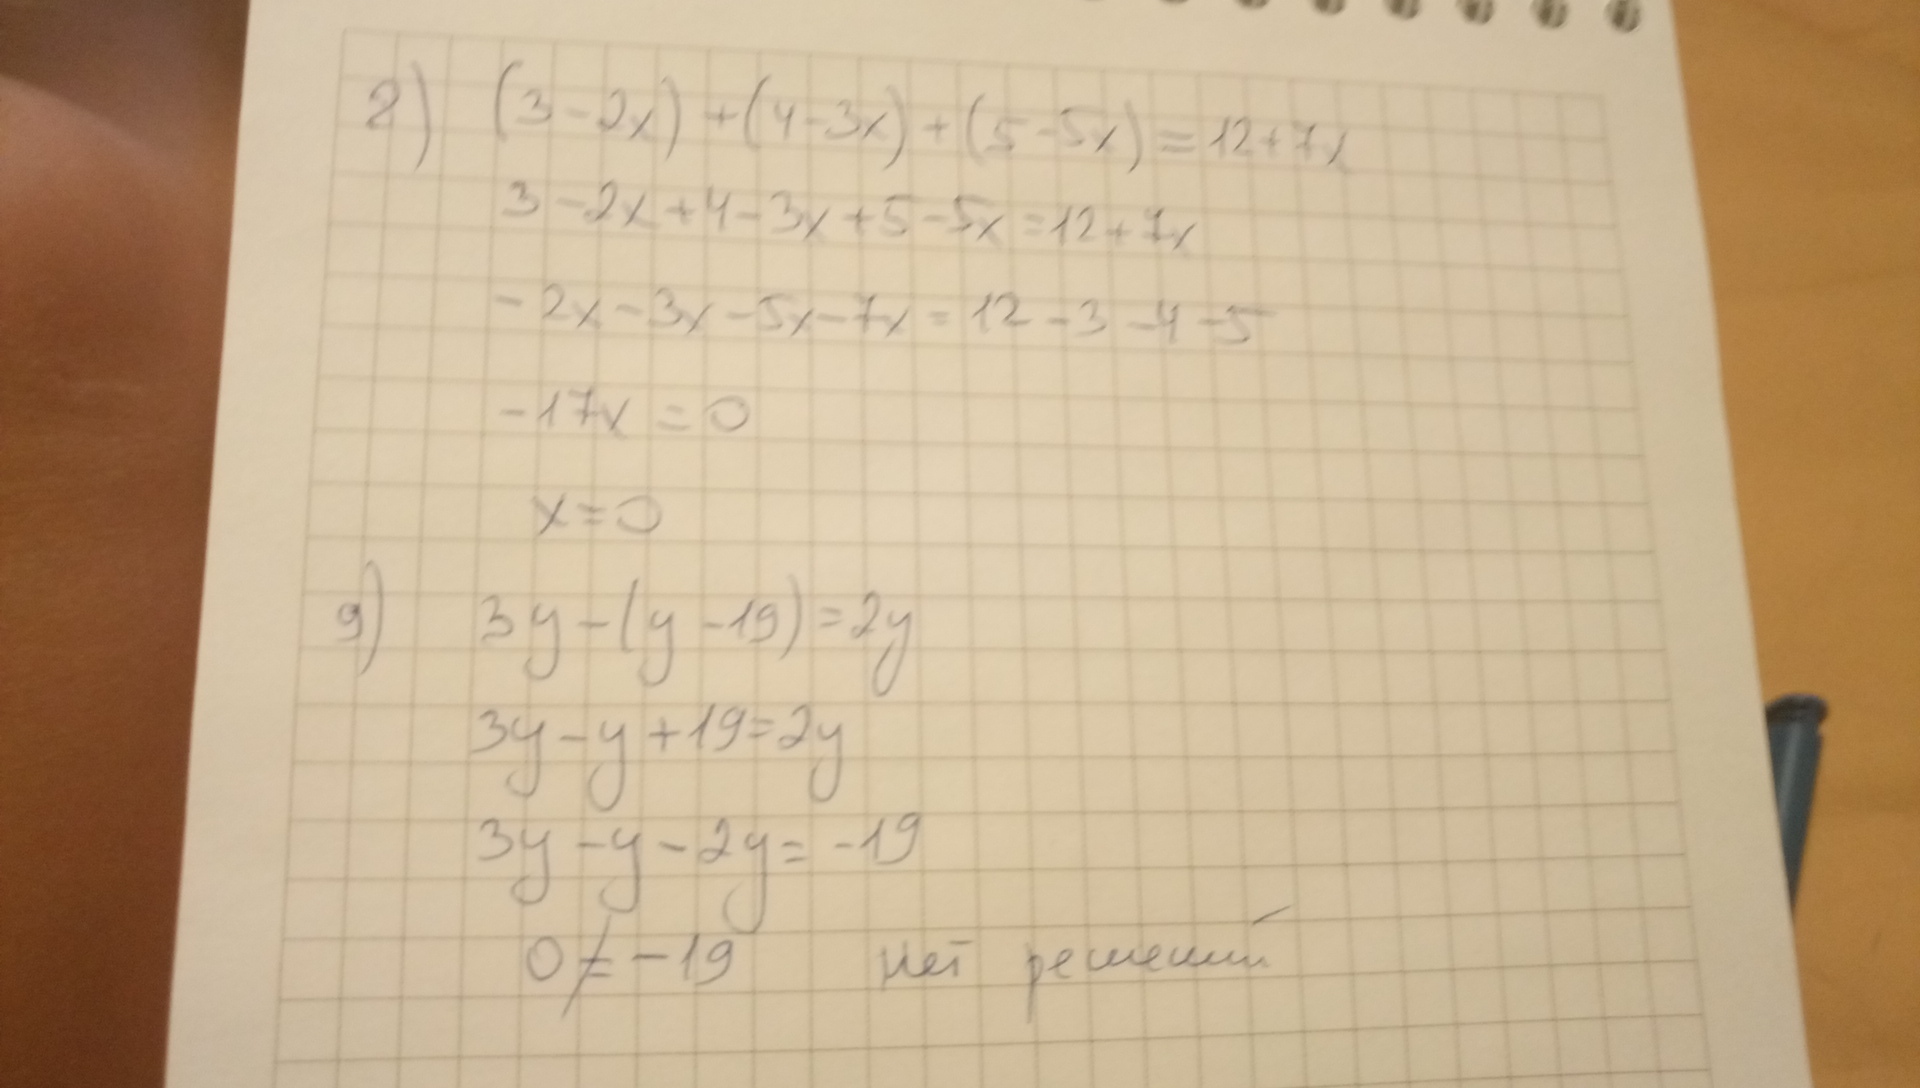 8) (3-2x)+(4-3x)+(5-5x)=12+7x
3-2x+4-3x+5-5x=12+7x
-2x-3x-5x-7x=12-3-4-5
-17x=0
x=0
9) 3y-(y-19)=2y
3y-y+19=2y
3y-y-2y=-19
0≠-19 нет решений